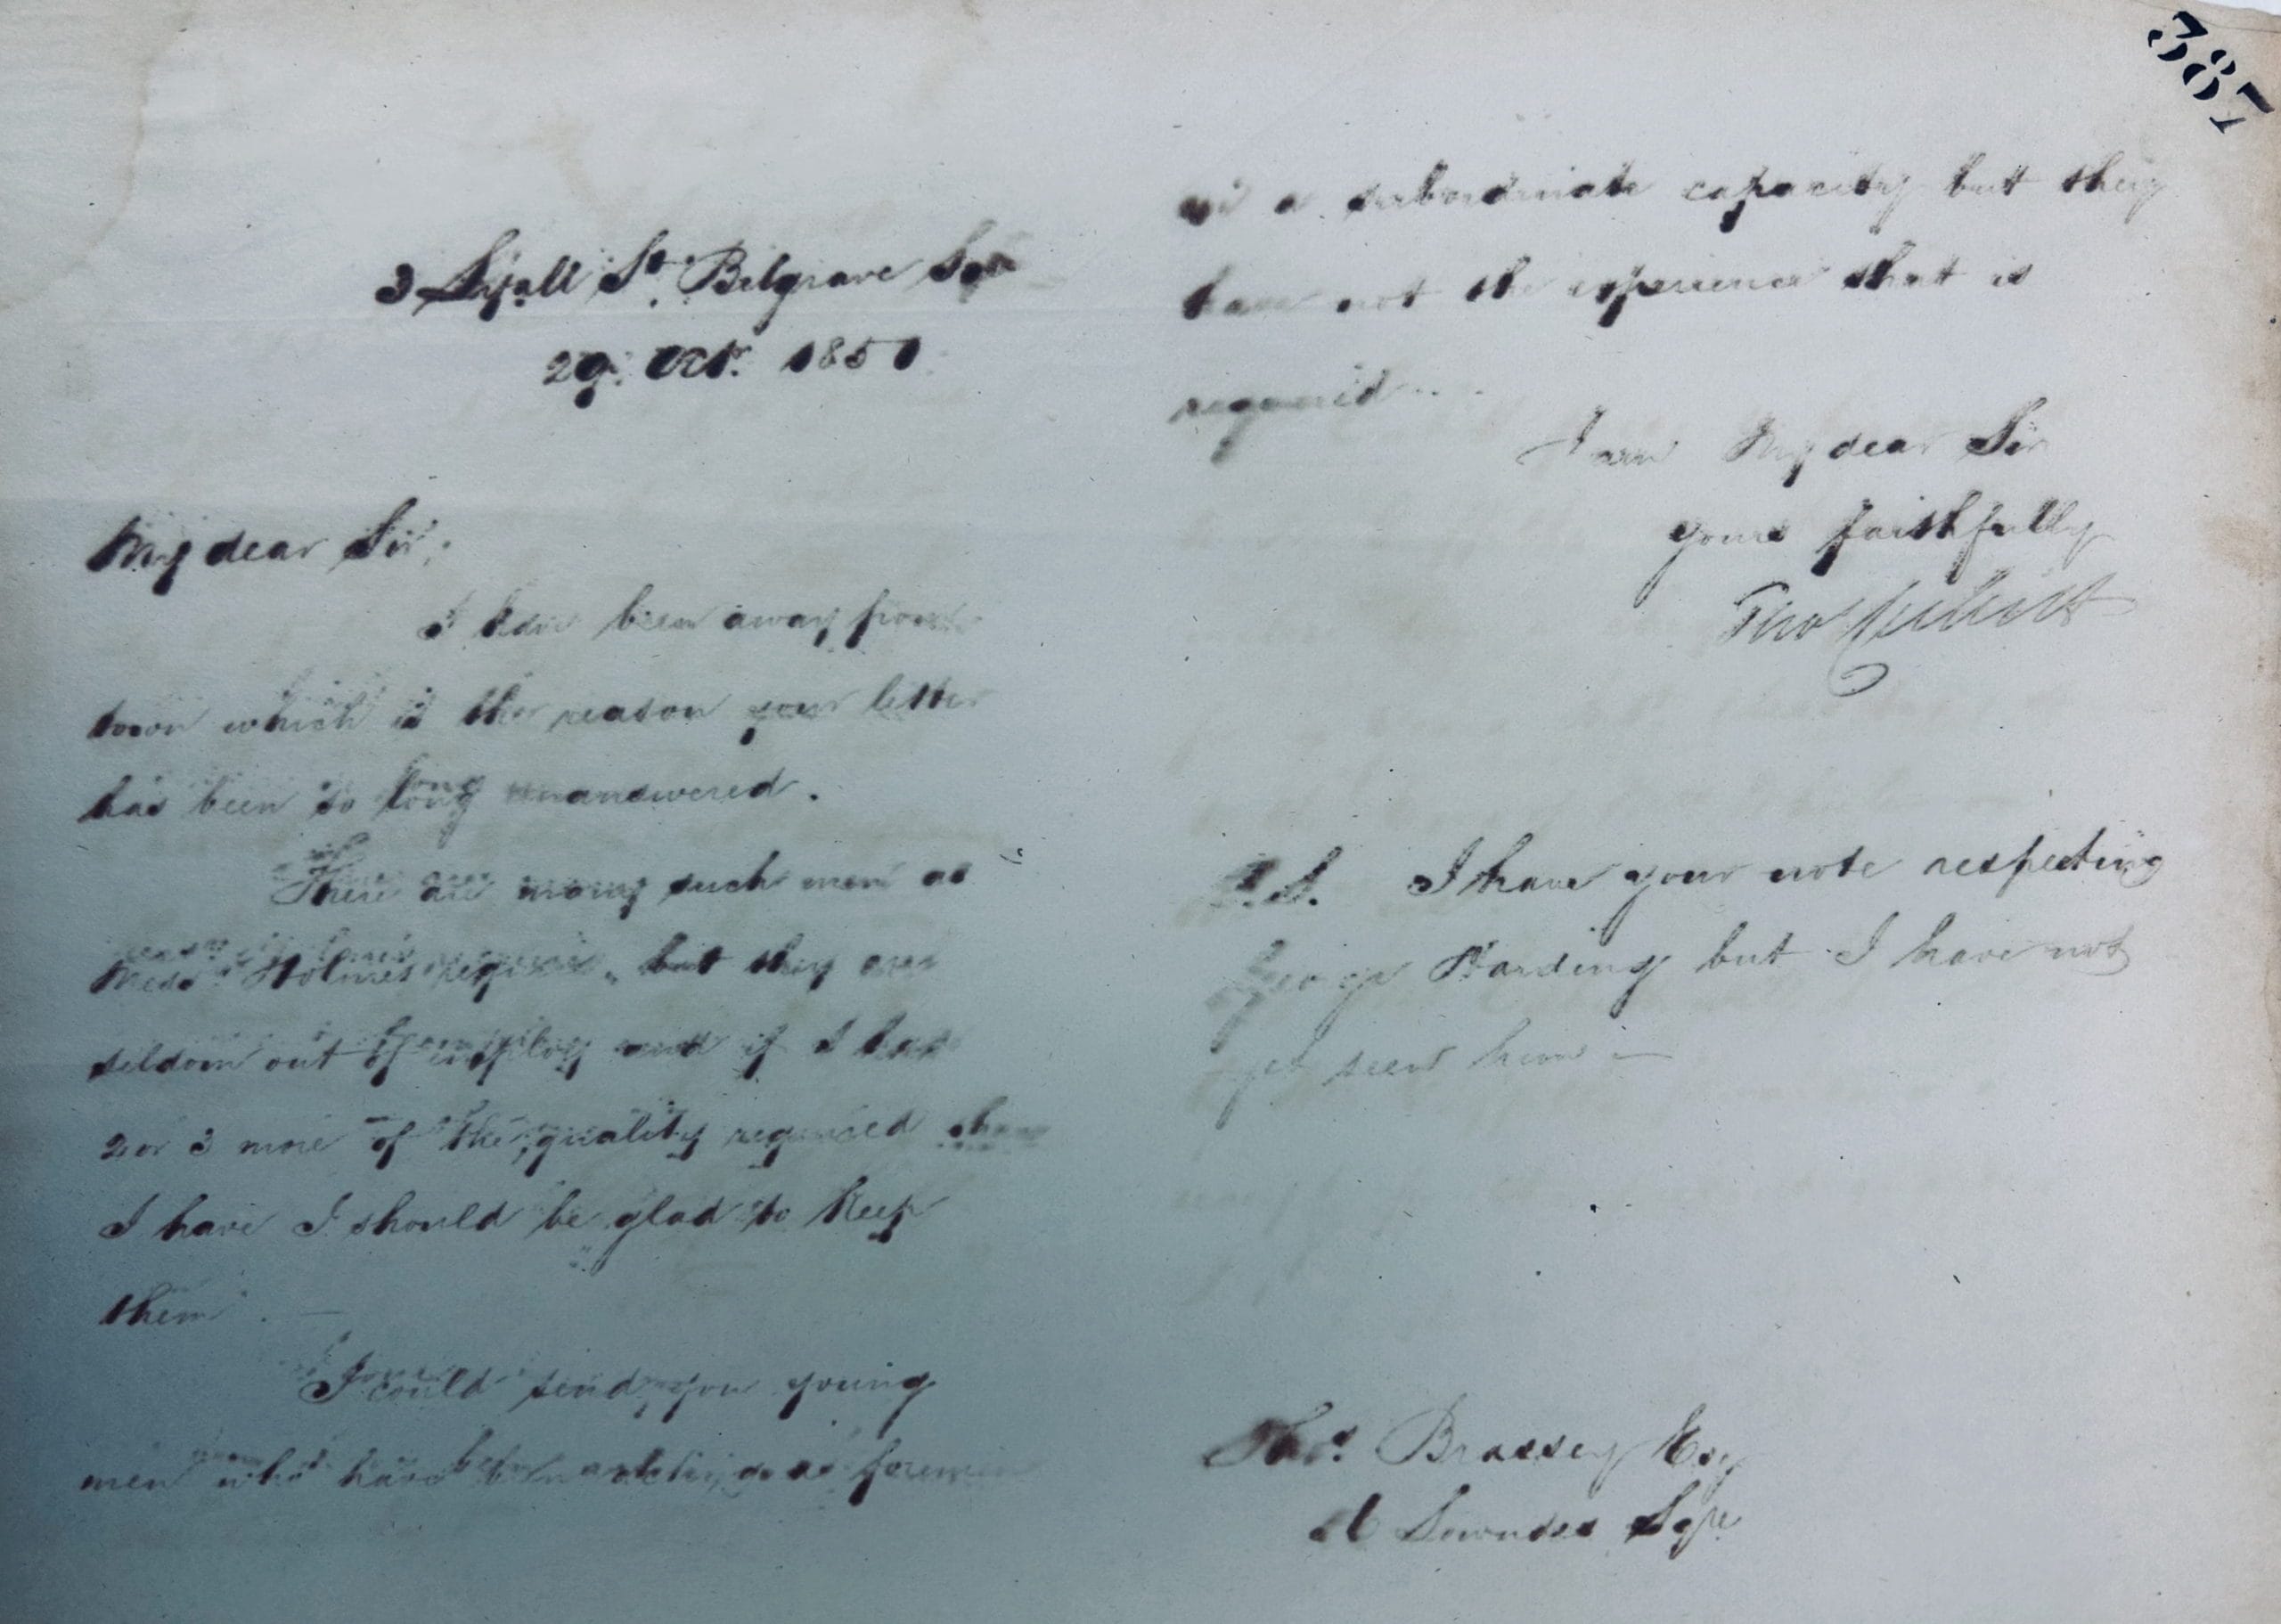 387
3 Lyall St. Belgrave Sqre
29. Octr. 1850
My dear Sir,
I have been away from
town which is the reason your letter
has been so long unanswered.
There are many such men as
Messrs Holmes require, but they are
seldom out of employ and if I had
2 or 3 more of the quality required than
I have I should be glad to keep
them. —
I could send you young
men who have been acting as foremen
in a subordinate capacity but they
have not the experience that is
required.
I am My dear Sir
yours faithfully
Thos
P.S. I have your note respecting
George Harding but I have not
yet seen him —
Thos. Brassey Esq
Lowndes Sqre